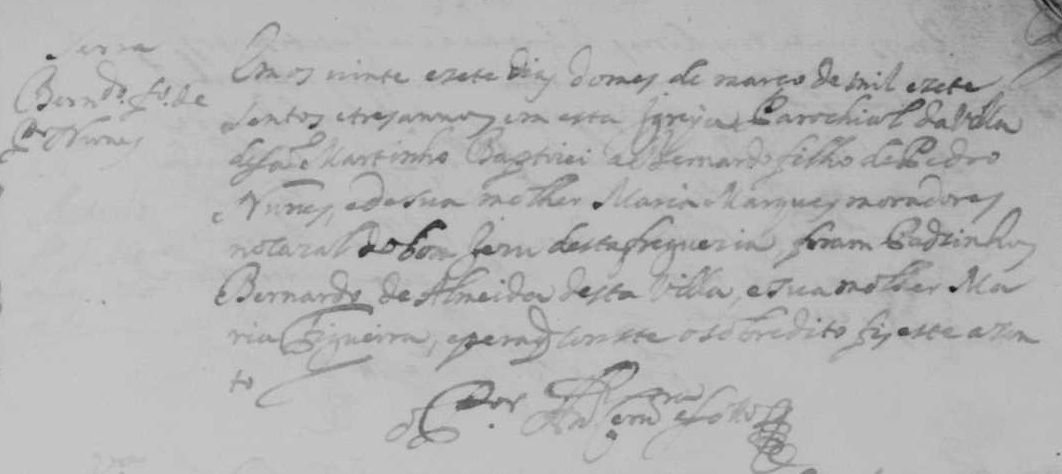 Serra
Bern.do f.o de
P.o Nunes
Em os vinte e sete dias do mes de março de mil e sete
sentos e tres annos em esta Igreija Parochial da Villa
de São Martinho Baptizei a Bernardo filho de Pedro
Nunes, e de sua molher Maria Marques moradores
no Cazal do bom Jezu desta freguezia, foram Padrinhos
Bernardo de Almeida desta Villa, e sua molher Ma
ria Figueira, e pera q conste o sobredito fis este azen
to
o P.or